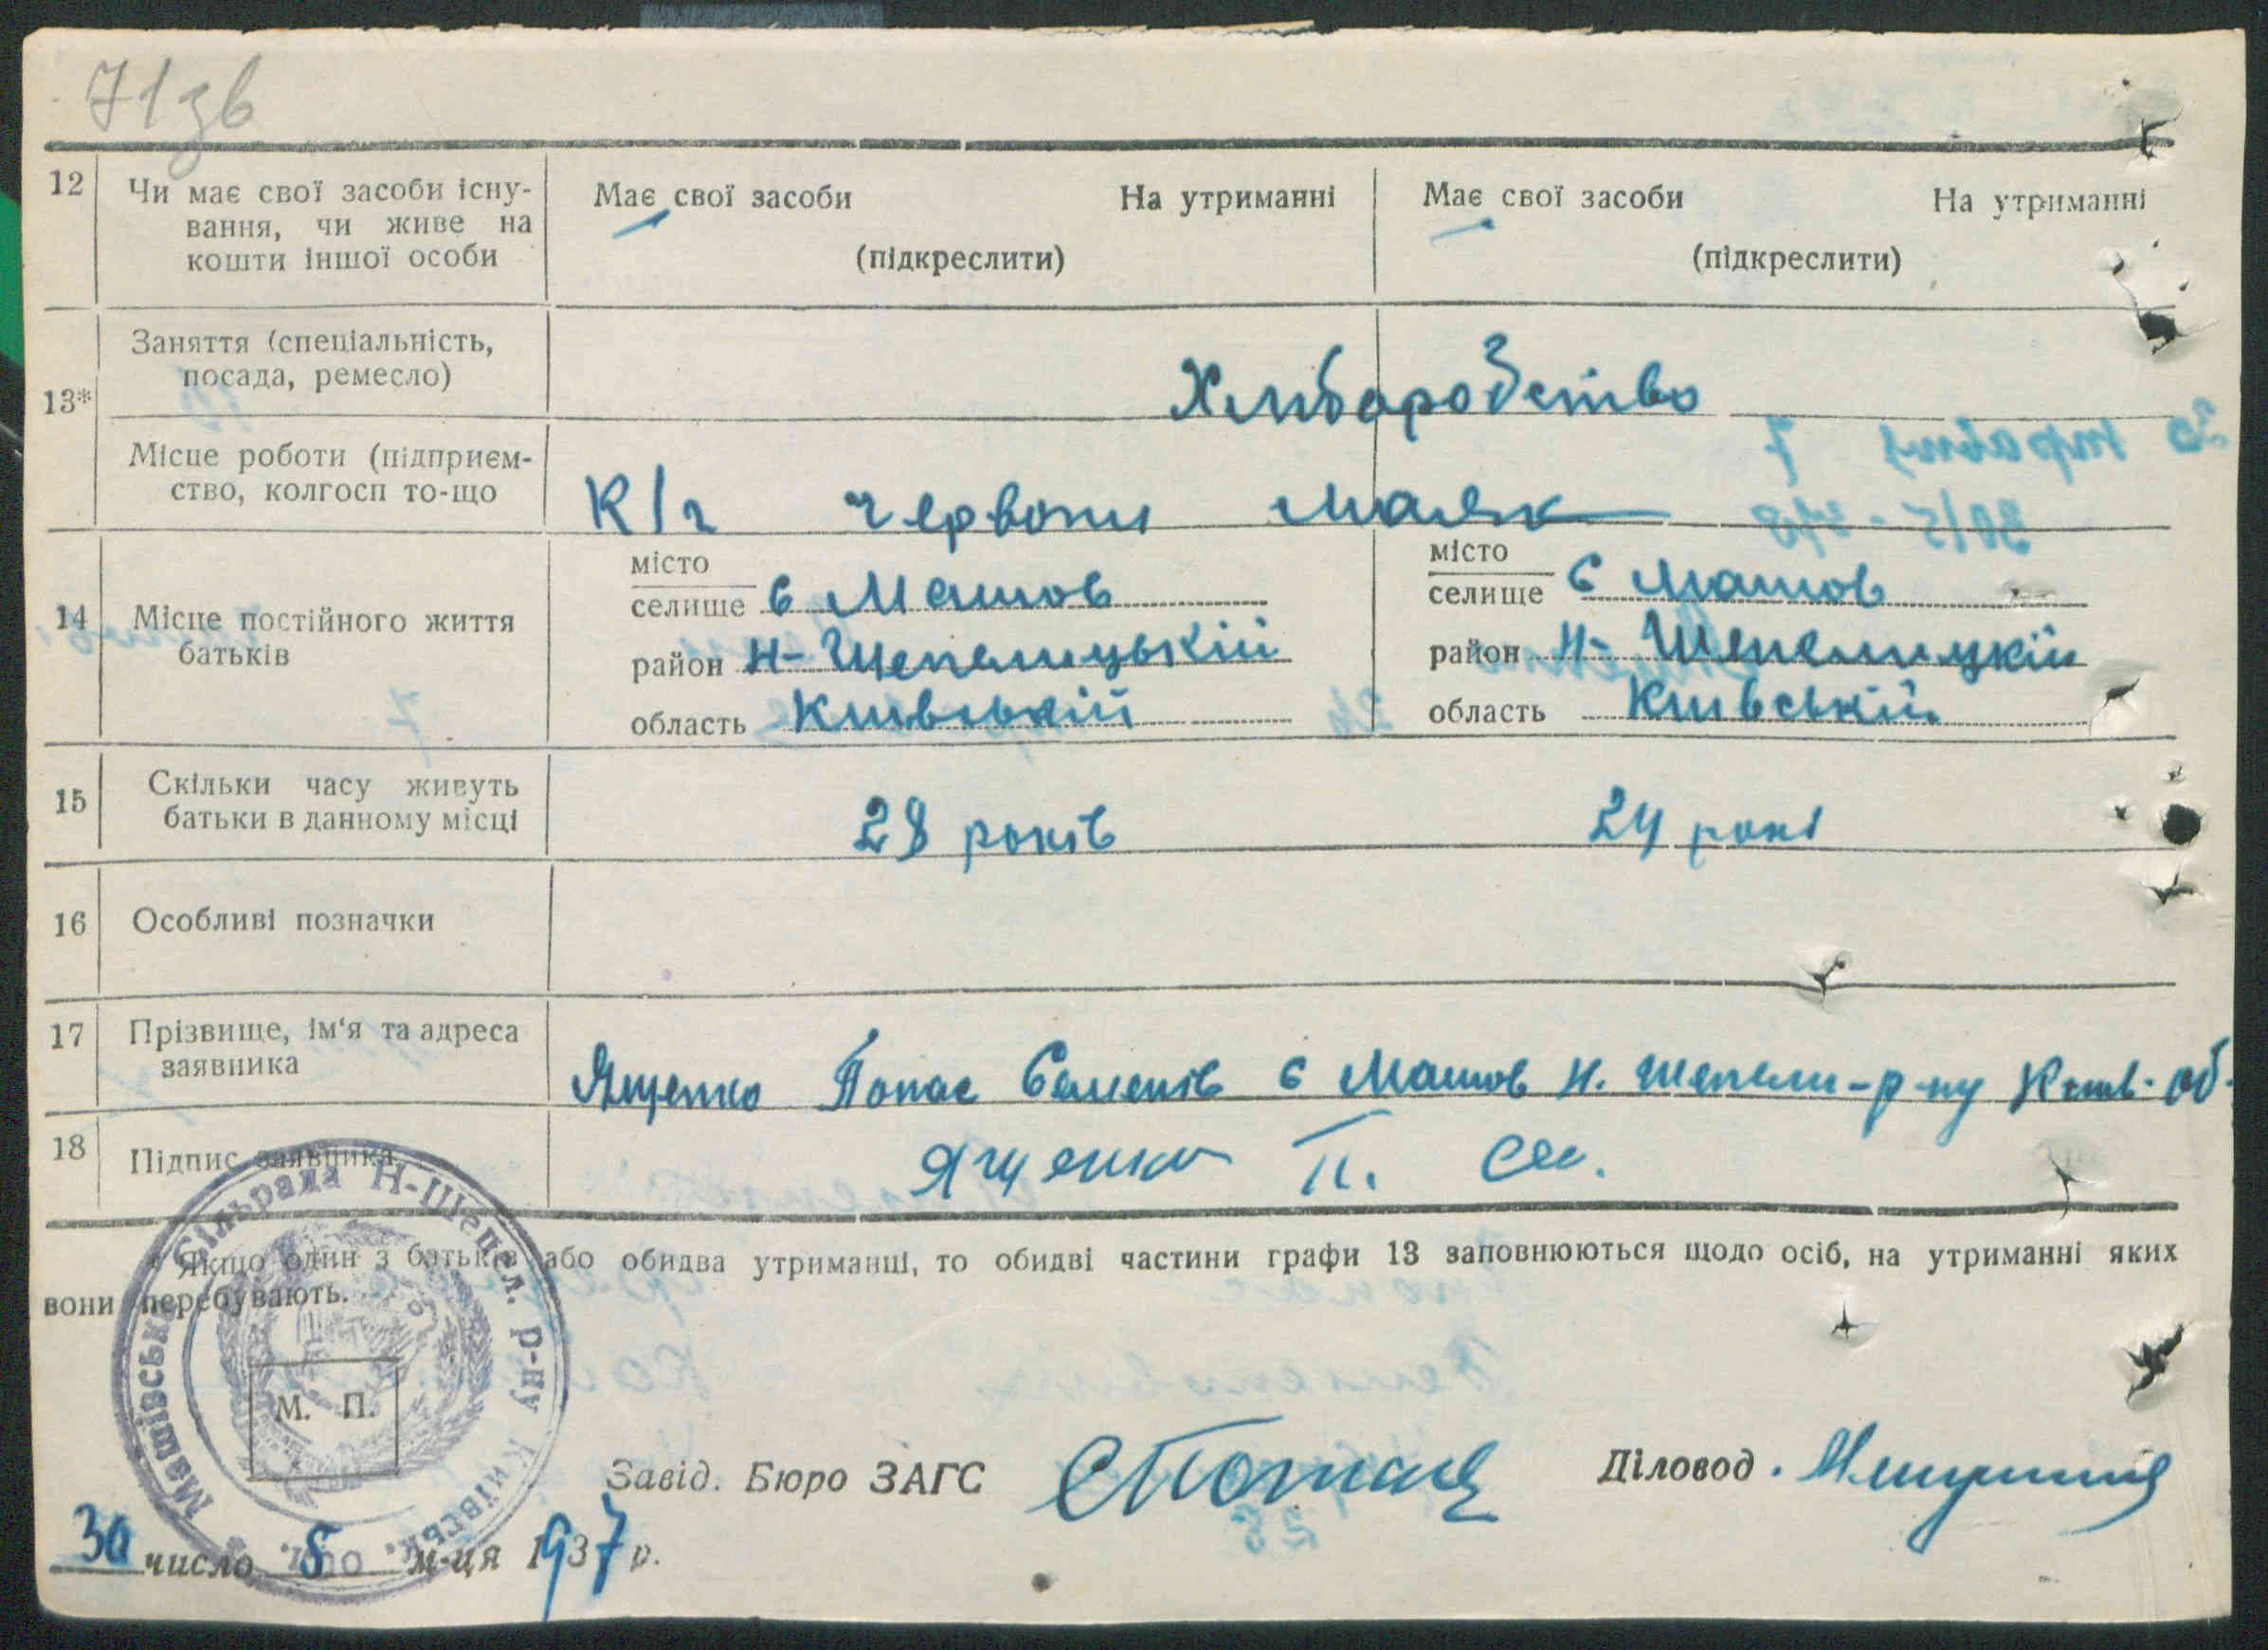 71зв
12 Чи має свої засоби існу- Має свої засоби На утриманні Має свої засоби На утриманні
вання, чи живе на
кошти іншої особи (підкреслити) (підкреслити)
Заняття (спеціальність,
посада, ремесло) Хлібаробство
13*
Місце роботи (підприєм-
ство, колгосп то-що К/г Червони маяк
місто місто
селище с Машов селище с Машов
14 Місце постійного життя
батьків район Н-Шепелицькій район Н-Шепелицкій
область Київській область Київській
15 Скільки часу живуть
батьки в данному місці 28 років 24 рокі
16 Особливі позначки
17 Прізвище, ім'я та адреса
заявника Ященко Топас Семенів с Машов Н. Шепели-р-ну Київ. об.
18 Підпис заявника Ященко П. Сем.
* Якщо один з батьків або обидва утриманці, то обидві частини графи 13 заповнюються щодо осіб, на утриманні яких
вони перебувають.
Машівська Сільрада Н-Шепел. р-ну Київськ. обл.
М. П.
Завід. Бюро ЗАГС Діловод
30 число 5 м-ця 1937 р.